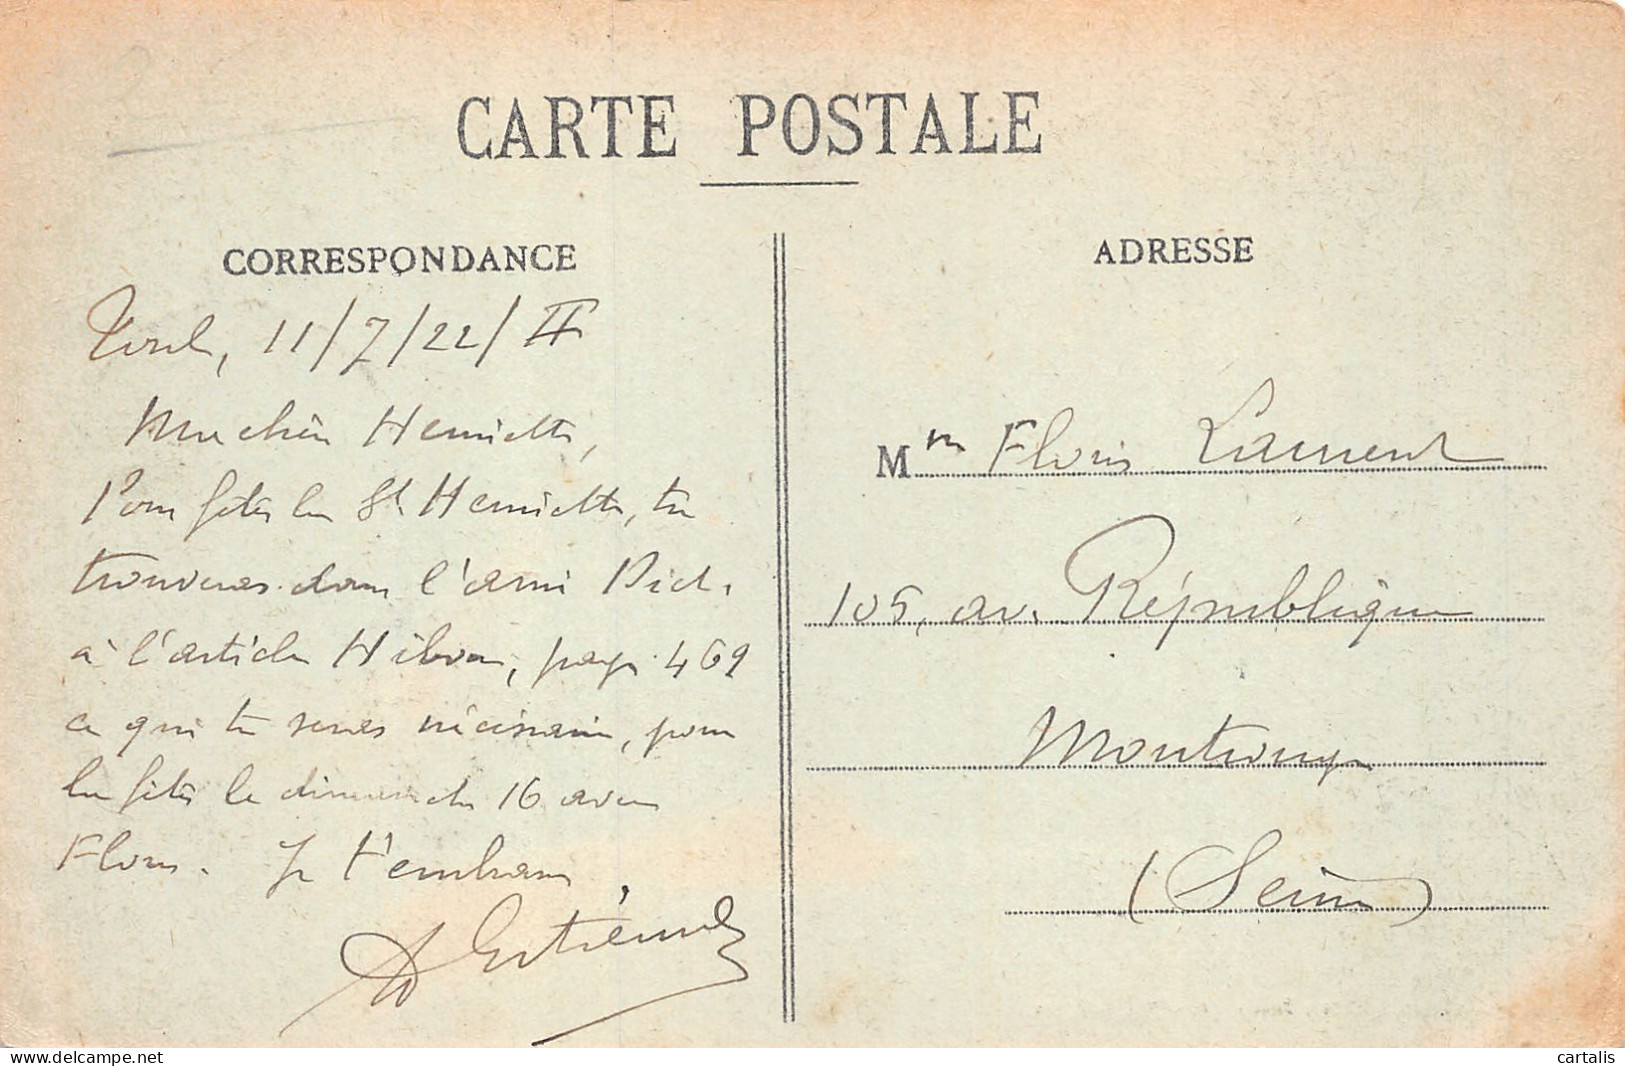 CARTE POSTALE
CORRESPONDANCE
Toul, 11/7/22/ II
Ma chère Henriette,
Pour fêter la St Henriette, tu
trouveras dans l'ami Pich.
à l'article page 469
ce que tu seras nécessaire, pour
la fêter le dimanche 16 avec
Floris. Je t'embrasse,
ADRESSE
Mm Floris Laurent
105, av. République
Montrouge
(Seine)
cartalis